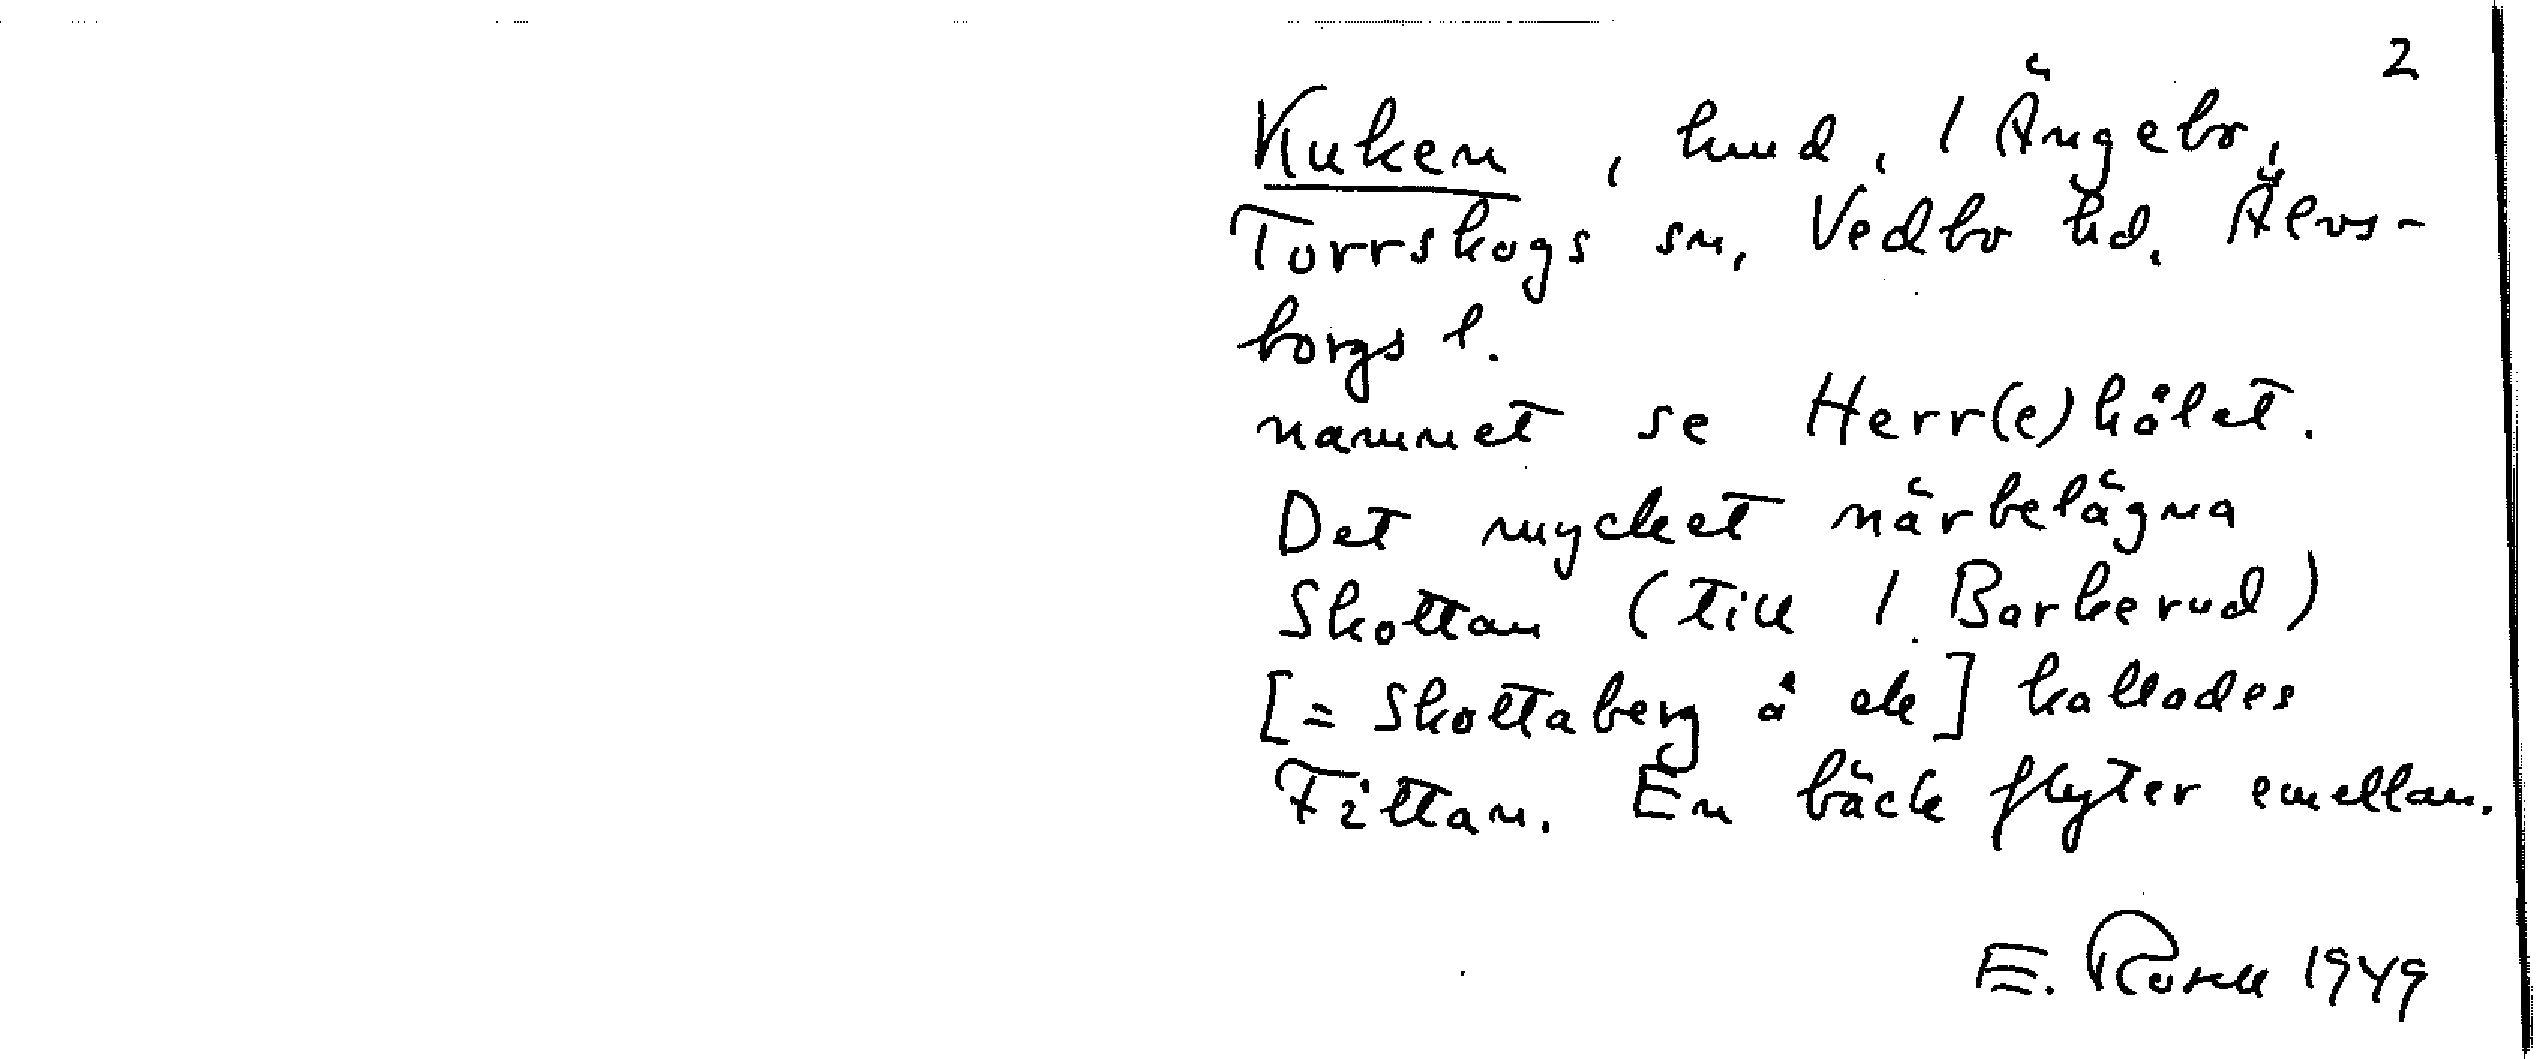 2
Kuken, hmd, 1 Ängebo,
Torrskogs sn, Vedbo hd. Älvs-
borgs l.
namnet se Herr(e)hålet.
Det mycket närbelägna
Skottan (till 1 Barkerud)
[= Skottaberg å ek] kallades
Fittan. En bäck flyter emellan.
E. Rosell 1949